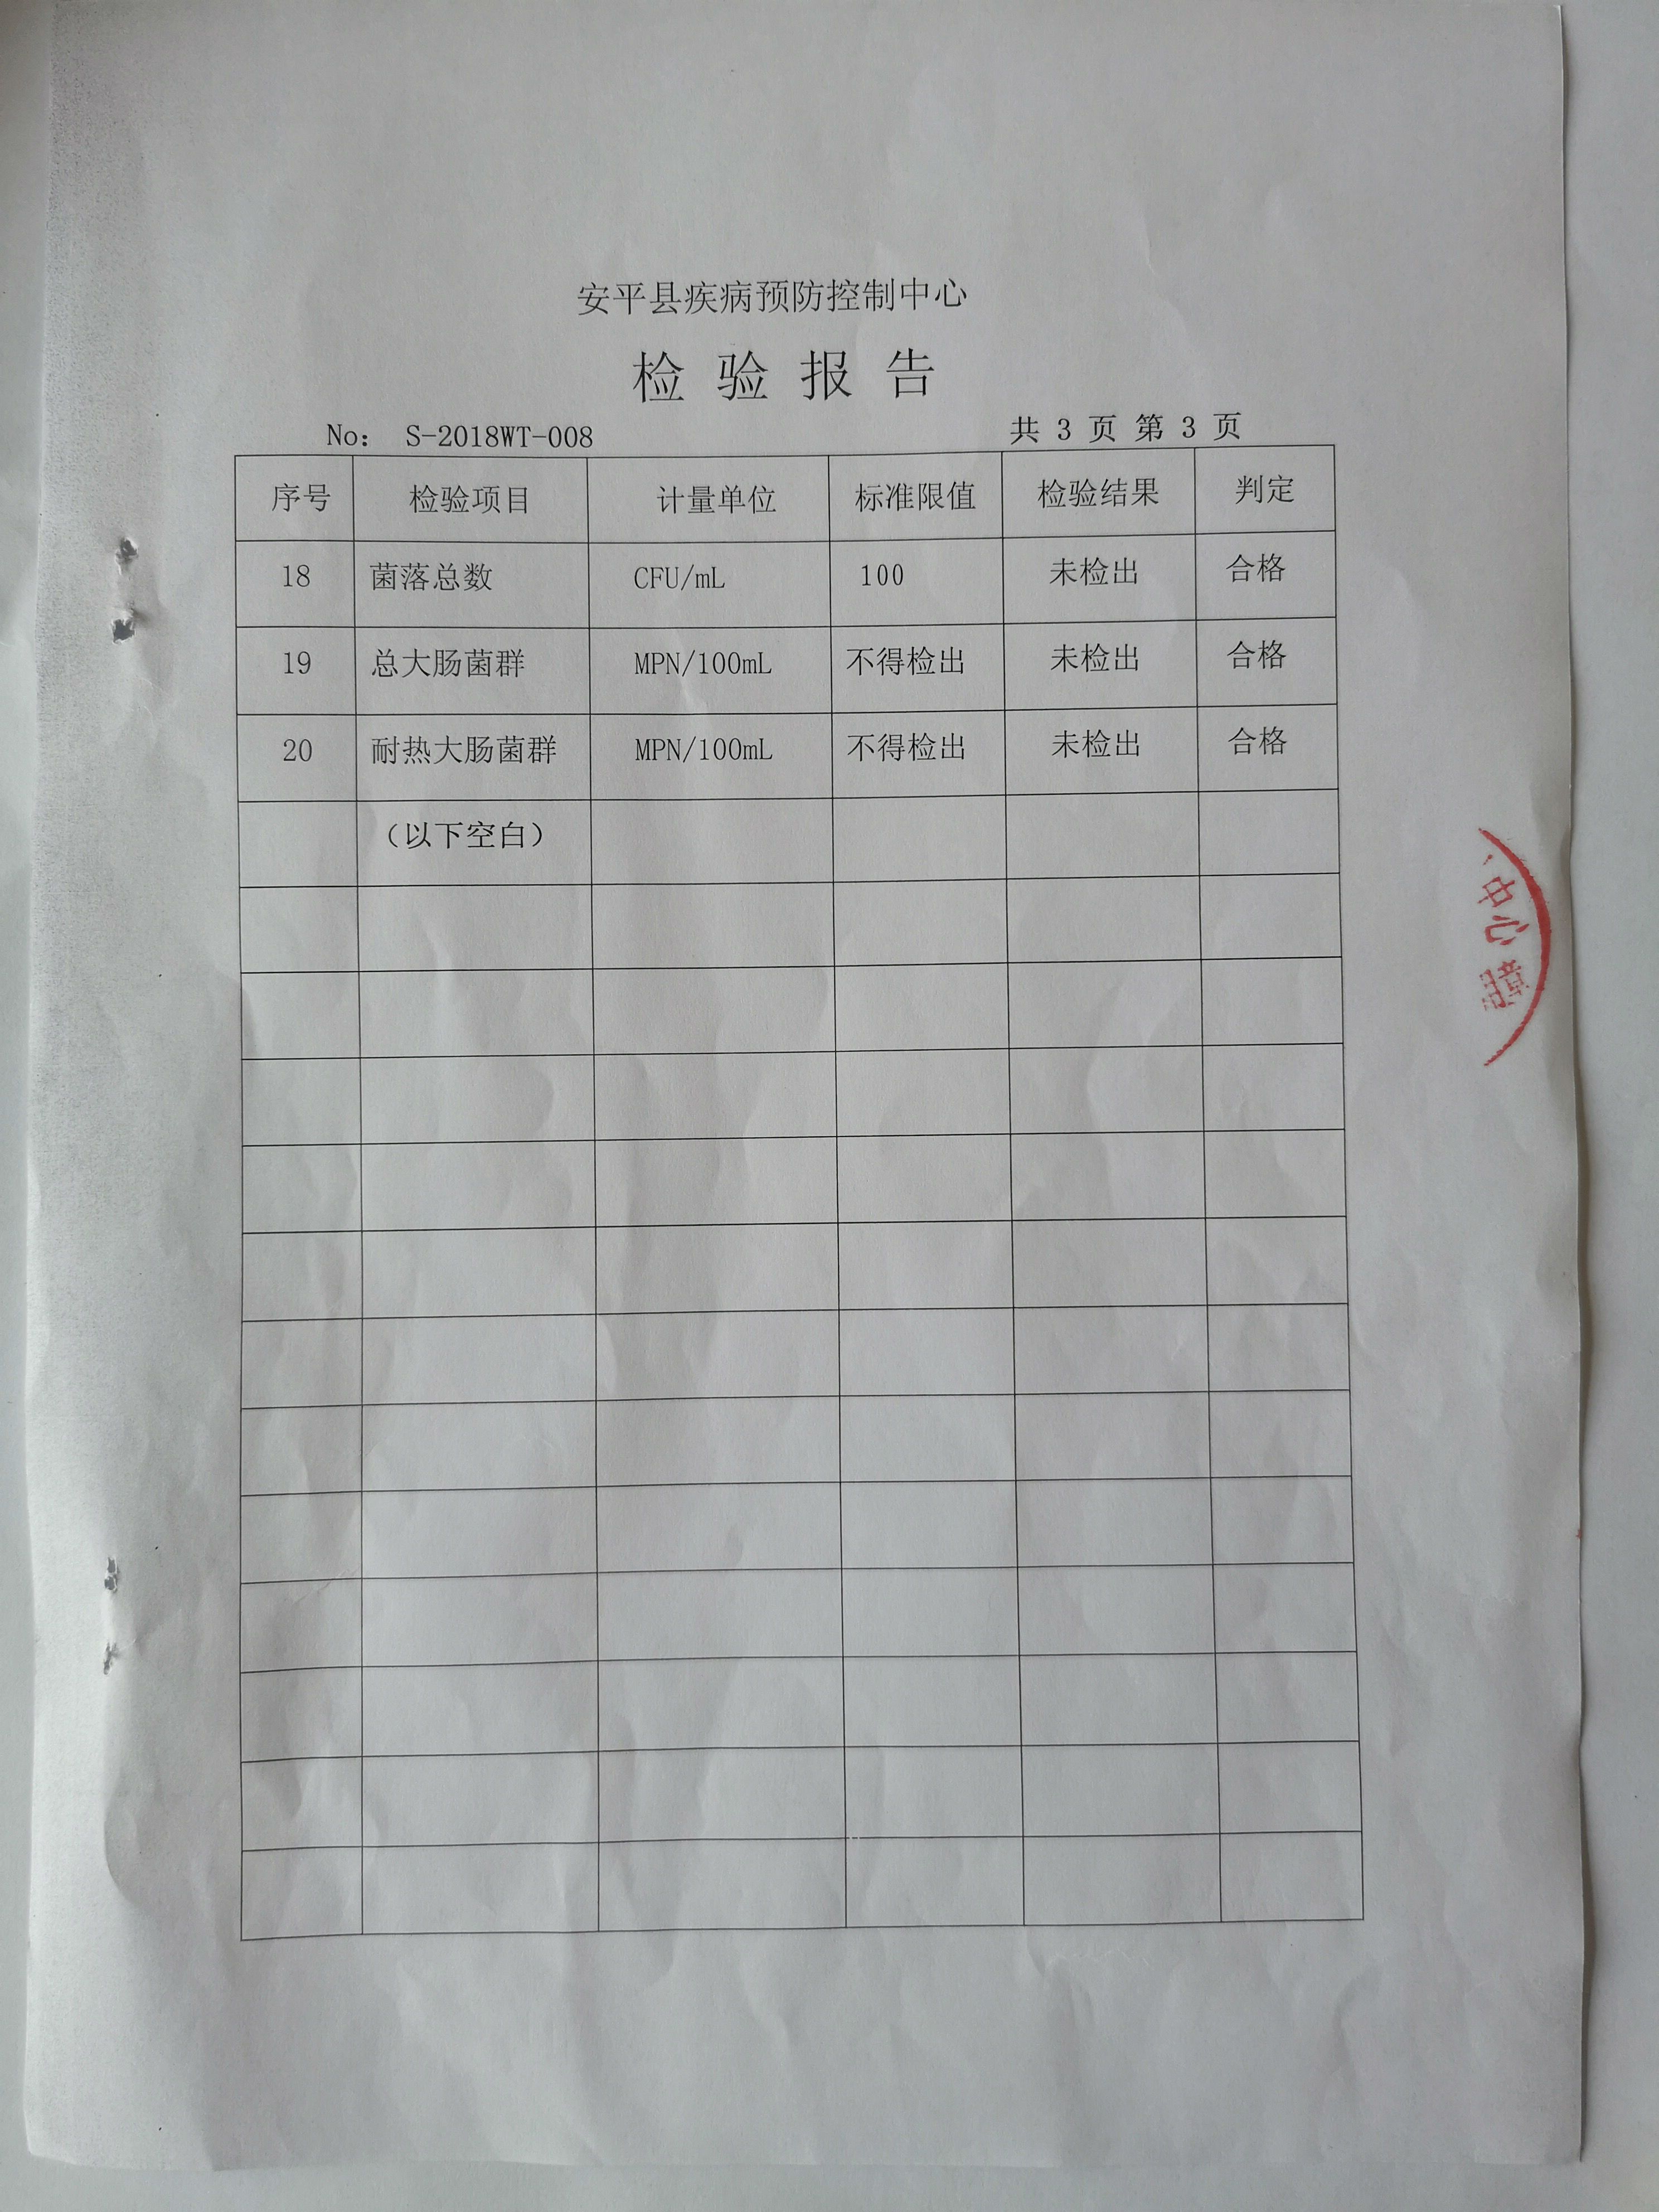 安平县疾病预防控制中心
检验报告
No: S-2018WT-008 共 3 页 第 3 页
序号 检验项目 计量单位 标准限值 检验结果 判定
18 菌落总数 CFU/mL 100 未检出 合格
19 总大肠菌群 MPN/100mL 不得检出 未检出 合格
20 耐热大肠菌群 MPN/100mL 不得检出 未检出 合格
（以下空白）
中心
章